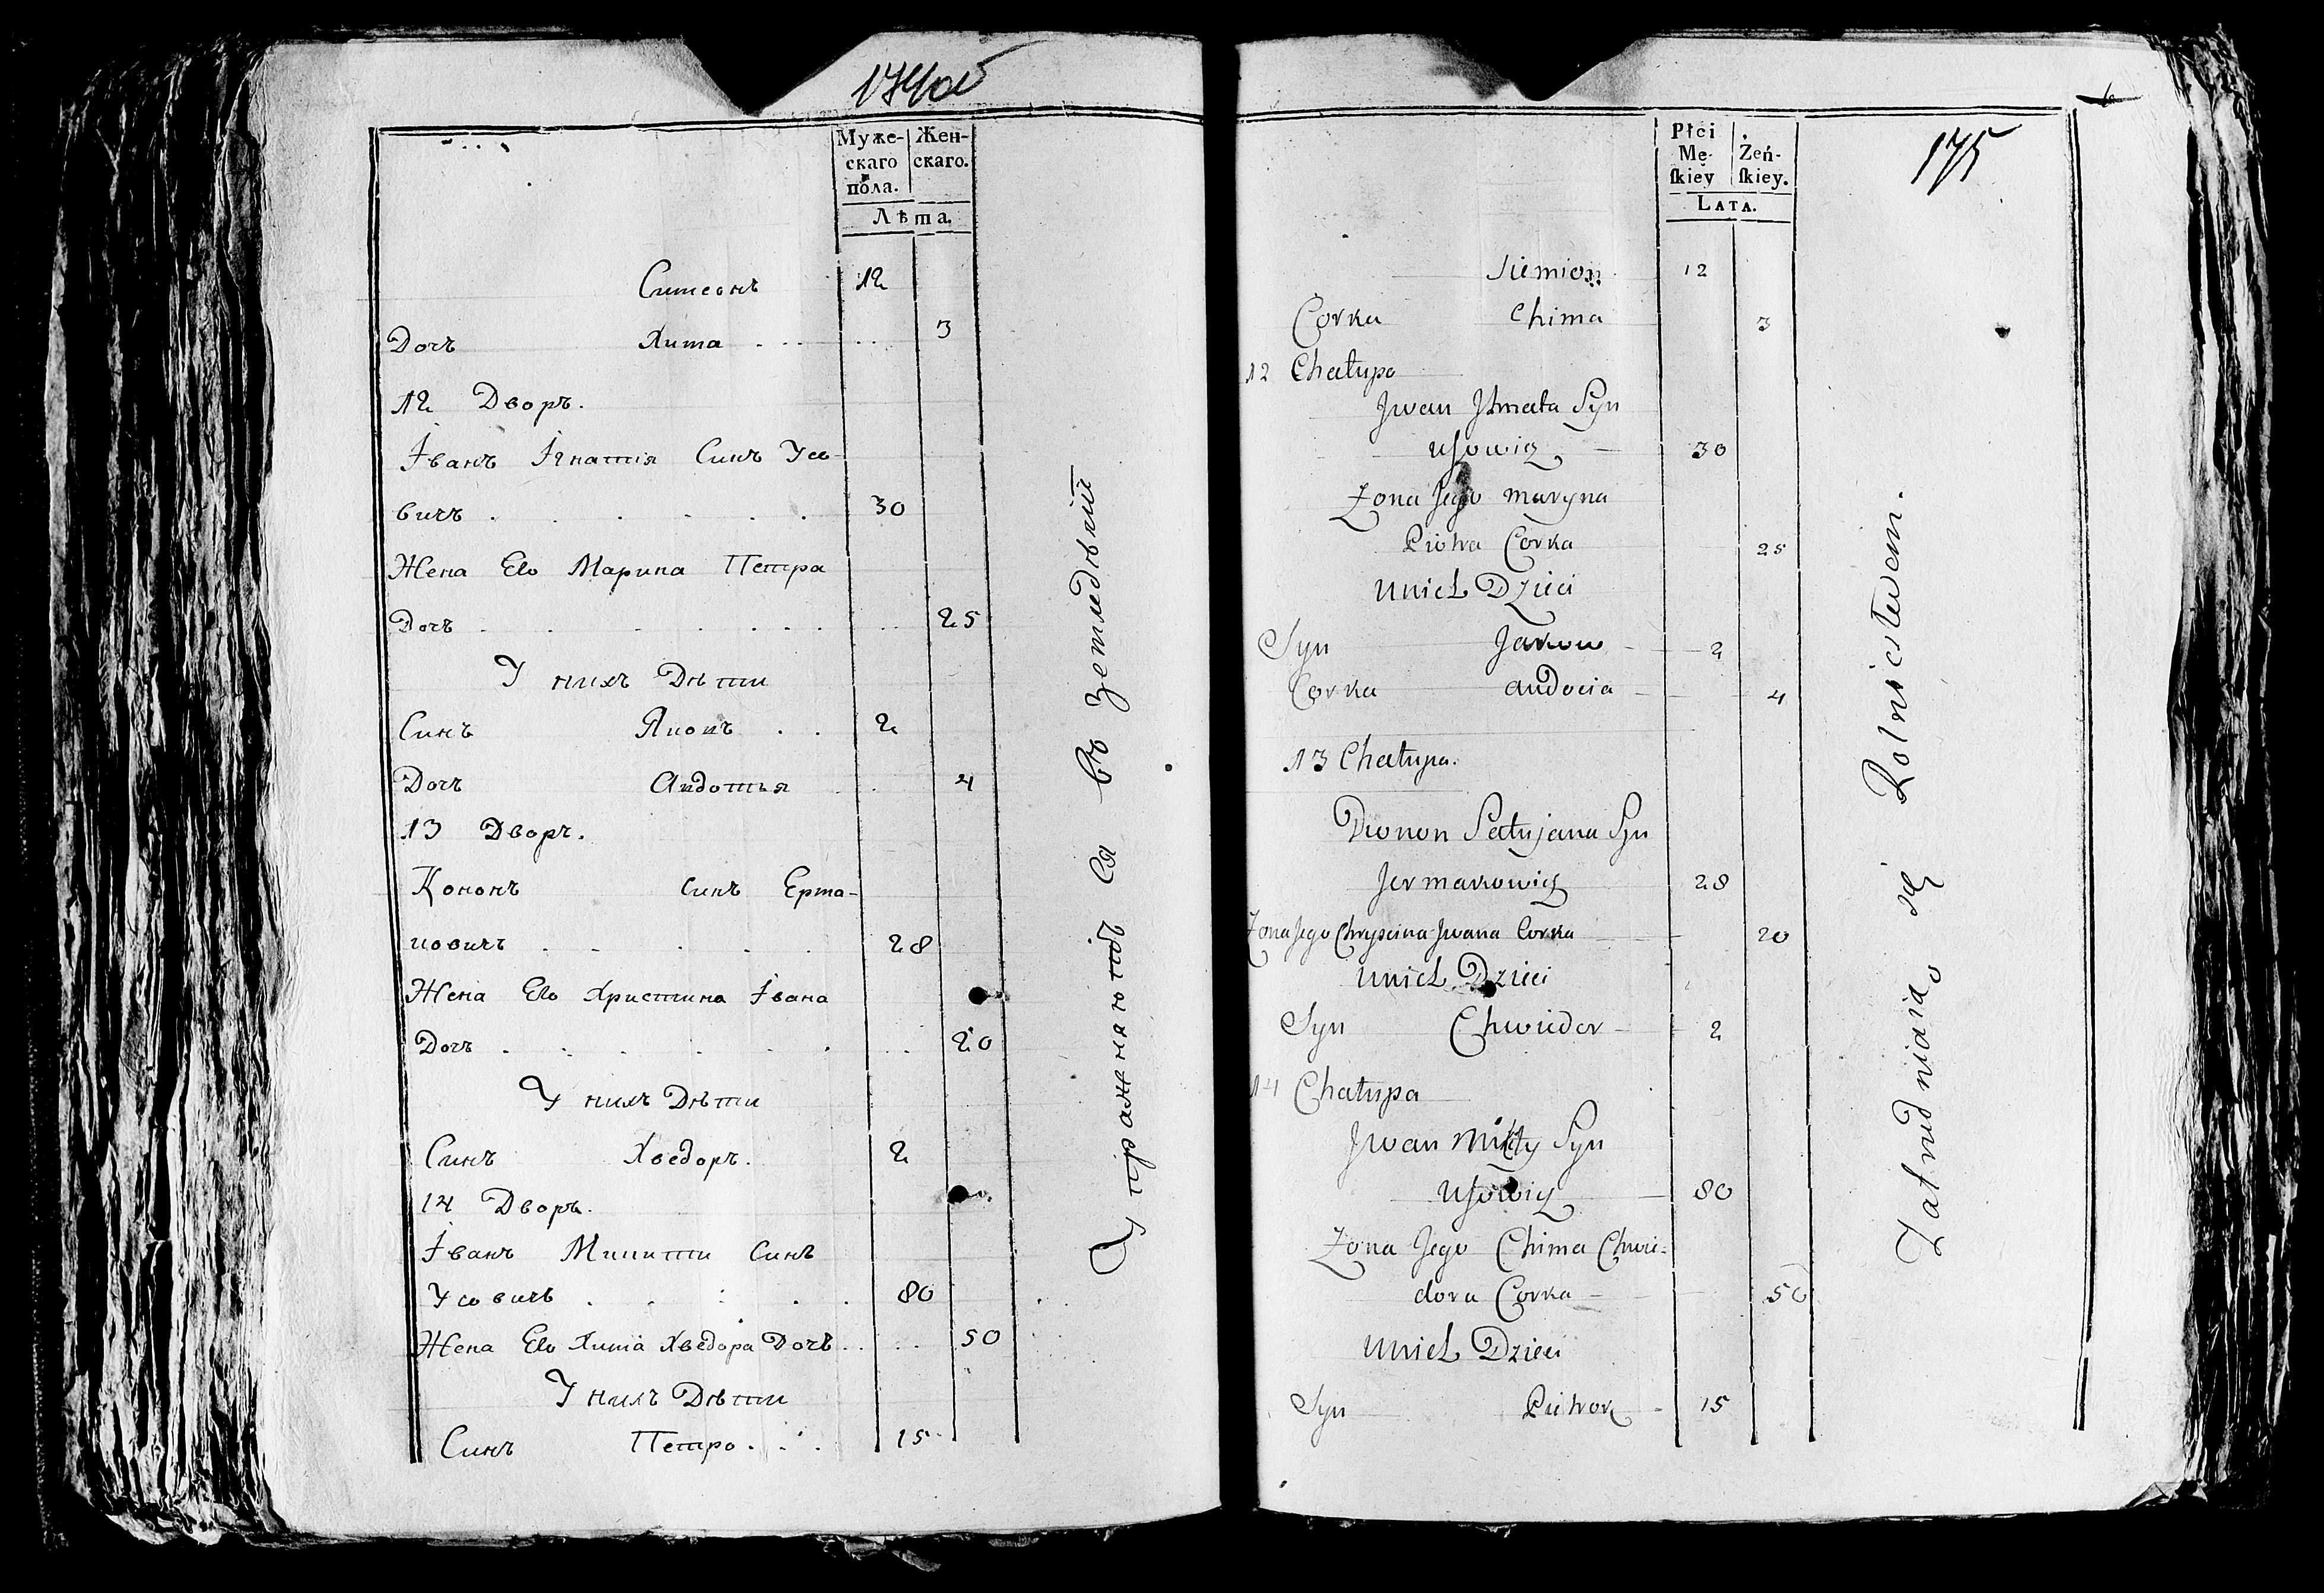 174об
Муже-
скаго
пола.
Жен-
скаго.
Лѣта.
Симеонъ 12
Дочъ Хима 3
12 Дворъ.
Іванъ Ігнатія Синъ Усо-
вичъ 30
Жена Ево Марина Петра
Дочъ 25
У нихъ Дѣти
Синъ Яковъ 2
Дочъ Авдотья 4
13 Дворъ.
Кононъ синъ Ерма-
ковичъ 28
Жена Ево Христина Івана
Дочъ 20
У нихъ Дѣти
Синъ Хведоръ. 2
14 Дворъ.
Іванъ Микити Синъ
Усовичъ 80
Жена Ево Хима Хведора Дочъ 50
У нихъ Дѣти
Синъ Петро 15
Упражняютъ ся въ
175
Płci
Mę-
ſkiey
Żeń-
ſkiey.
LATA.
Siemion 12
Corka Chima 3
12 Chałupa
Jwan Syn
Usowicz 30
Zona Jego Maryna
Piotra Corka 25
U nich Dzieci
Syn Jakow 2
Corka Audocia 4
13 Chałupa.
Syn
Jermakowicz 28
Zona Jego Chryscina Jwana Corka 20
U nich Dzieci
Syn Chwiedor 2
14 Chałupa
Jwan Mikity Syn
Usowicz 80
Zona Jego Chima Chwie-
dora Corka 50
U nich Dzieci
Syn Pietrok 15
Zatrudniaią się Rolnictwem.